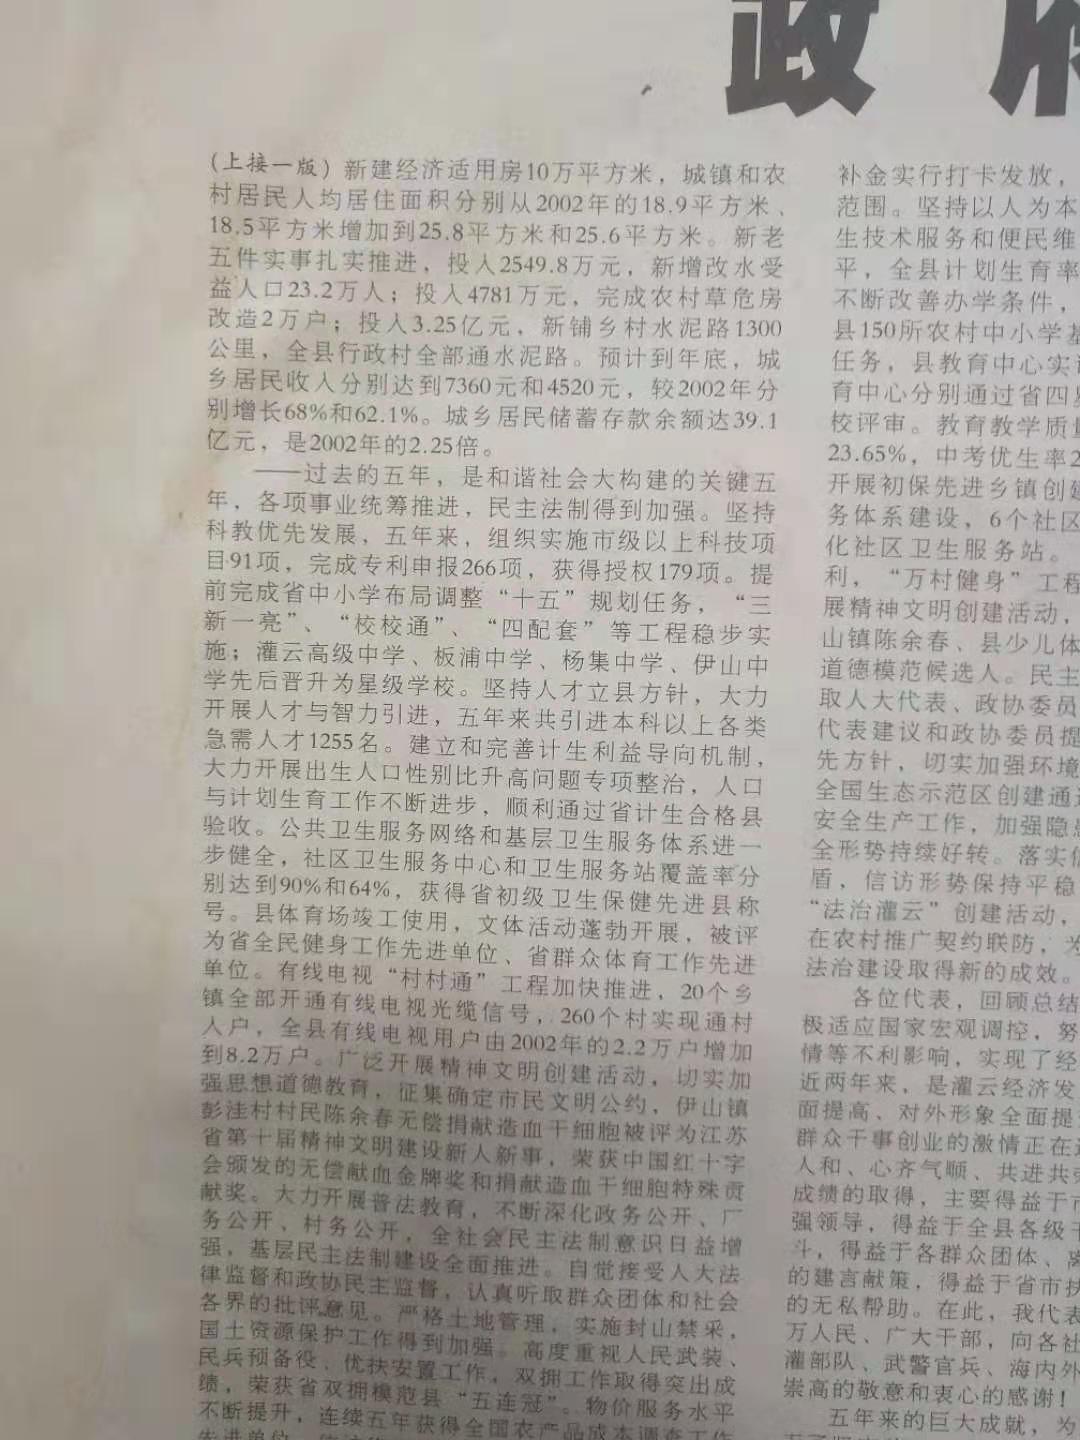 政府
(上接一版) 新建经济适用房10万平方米，城镇和农
村居民人均居住面积分别从2002年的18.9平方米、
18.5平方米增加到25.8平方米和25.6平方米。新老
五件实事扎实推进，投入2549.8万元，新增改水受
益人口23.2万人；投入4781万元，完成农村草危房
改造2万户；投入3.25亿元，新铺乡村水泥路1300
公里，全县行政村全部通水泥路。预计到年底，城
乡居民收入分别达到7360元和4520元，较2002年分
别增长68%和62.1%。城乡居民储蓄存款余额达39.1
亿元，是2002年的2.25倍。
——过去的五年，是和谐社会大构建的关键五
年，各项事业统筹推进，民主法制得到加强。坚持
科教优先发展，五年来，组织实施市级以上科技项
目91项，完成专利申报266项，获得授权179项。提
前完成省中小学布局调整“十五”规划任务，“三
新一亮”、“校校通”、“四配套”等工程稳步实
施；灌云高级中学、板浦中学、杨集中学、伊山中
学先后晋升为星级学校。坚持人才立县方针，大力
开展人才与智力引进，五年来共引进本科以上各类
急需人才1255名。建立和完善计生利益导向机制，
大力开展出生人口性别比升高问题专项整治，人口
与计划生育工作不断进步，顺利通过省计生合格县
验收。公共卫生服务网络和基层卫生服务体系进一
步健全，社区卫生服务中心和卫生服务站覆盖率分
别达到90%和64%，获得省初级卫生保健先进县称
号。县体育场竣工使用，文体活动蓬勃开展，被评
为省全民健身工作先进单位、省群众体育工作先进
单位。有线电视“村村通”工程加快推进，20个乡
镇全部开通有线电视光缆信号，260个村实现通村
入户，全县有线电视用户由2002年的2.2万户增加
到8.2万户。广泛开展精神文明创建活动，切实加
强思想道德教育，征集确定市民文明公约，伊山镇
彭洼村村民陈余春无偿捐献造血干细胞被评为江苏
省第十届精神文明建设新人新事，荣获中国红十字
会颁发的无偿献血金牌奖和捐献造血干细胞特殊贡
献奖。大力开展普法教育，不断深化政务公开、厂
务公开、村务公开，全社会民主法制意识日益增
强，基层民主法制建设全面推进。自觉接受人大法
律监督和政协民主监督，认真听取群众团体和社会
各界的批评意见。严格土地管理，实施封山禁采，
国土资源保护工作得到加强。高度重视人民武装、
民兵预备役、优扶安置工作，双拥工作取得突出成
绩，荣获省双拥模范县“五连冠”。物价服务水平
不断提升，连续五年获得全国农产品成本调查工作
先进单位
补金实行打卡发放，
范围。坚持以人为本
生技术服务和便民维
平，全县计划生育率
不断改善办学条件，
县150所农村中小学基
任务，县教育中心实
育中心分别通过省四星
校评审。教育教学质量
23.65%，中考优生率2
开展初保先进乡镇创建
务体系建设，6个社区
化社区卫生服务站。
利，“万村健身”工程
展精神文明创建活动，
山镇陈余春、县少儿体
道德模范候选人。民主
取人大代表、政协委员
代表建议和政协委员提
先方针，切实加强环境
全国生态示范区创建通过
安全生产工作，加强隐患
全形势持续好转。落实信
盾，信访形势保持平稳
“法治灌云”创建活动，
在农村推广契约联防，为
法治建设取得新的成效。
各位代表，回顾总结
极适应国家宏观调控，努
情等不利影响，实现了经
近两年来，是灌云经济发
面提高、对外形象全面提
群众干事创业的激情正在
人和、心齐气顺、共进共荣
成绩的取得，主要得益于市
强领导，得益于全县各级干
斗，得益于各群众团体、离
的建言献策，得益于省市扶
的无私帮助。在此，我代表
万人民、广大干部，向各社
灌部队、武警官兵、海内外
崇高的敬意和衷心的感谢！
五年来的巨大成就，为